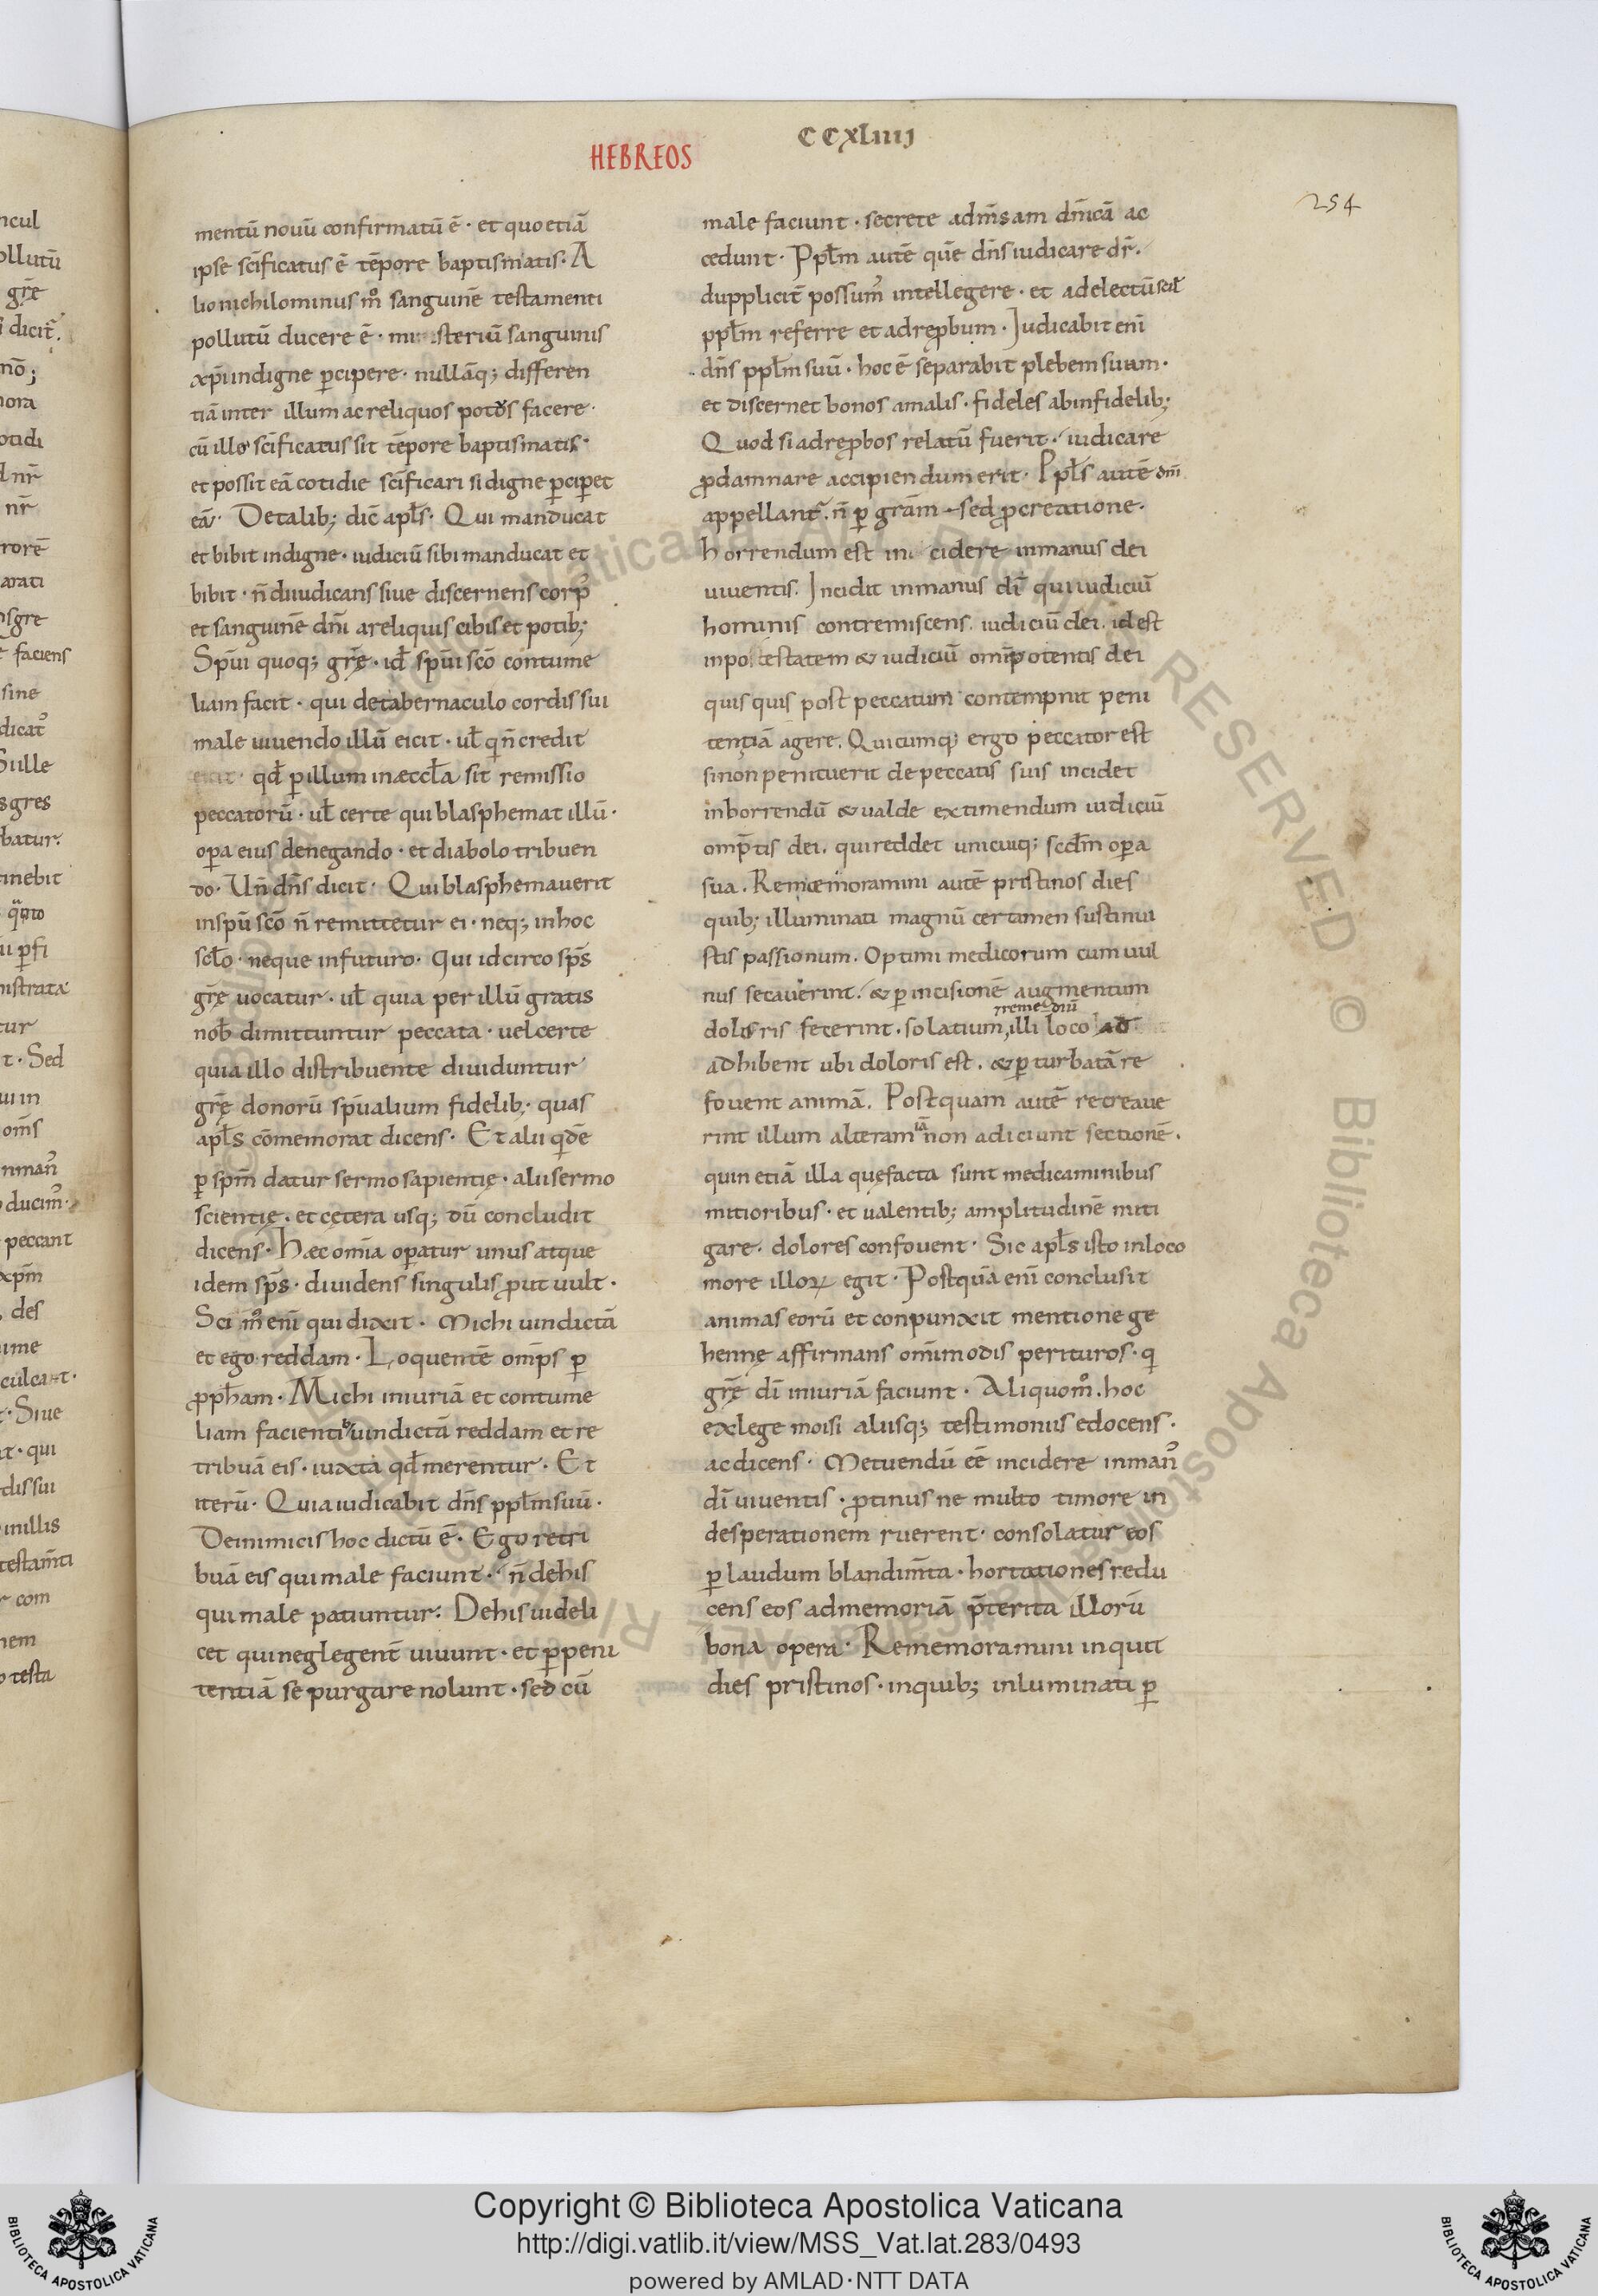 CCXLIIIJ
HEBREOS
254
mentū nouū confirmatū ē · et quo etiā
ipse sc̄ificatus ē tēpore baptismatis. A
lio nichilominus m̊ sanguinē testamenti
pollutū ducere ē · mi sterium sanguinis
xp̄i indigne ꝑcipere · nullāq; differen
tiā inter illum ac reliquos pot᷒s facere ·
cū illo sc̄ificatus sit tēpore baptismatis ·
et possit eā cotidie sc̄ificari si digne ꝑcip̄et
eā · De talib; dic̄ apl̄s · Qui manducat
et bibit indigne · iudiciū sibi manducat et
bibit · n̄ diiudicans siue discernens corp᷒
et sanguinē dn̄i a reliquis cibis et potib;
Sp̄ui quoq; gr̄ę · id̄ sp̄ui sc̄o contume
liam facit · qui de tabernaculo cordis sui
male uiuendo illū eicit · ul̄ q̇ n̄ credit
qd̄ ꝑ illum in æccl̄a sit remissio
peccatorū · ul̄ certe qui blasphemat illū ·
oꝑa eius denegando · et diabolo tribuen
do · Un̄ dn̄s dicit · Qui blasphemauerit
in sp̄ū sc̄o n̄ remittetur ei · neq; in hoc
scl̄o · neque in futuro · Qui idcirco sp̄s
gr̄ę uocatur · ul̄ quia per illū gratis
nob̄ dimittuntur peccata · uel certe
quia illo distribuente diuiduntur
gr̄ę donorū sp̄ualium fidelib; quas
apl̄s cōmemorat dicens · Et alii qdē
ꝑ sp̄m datur sermo sapientię · alii sermo
scientię · et cętera usq; dū concludit
dicens · Hæc om̄ia oꝑatur unus atque
idem sp̄s · diuidens singulis ꝓut uult ·
Sci m̊ eni᷒ qui dixit · Michi uindictā
et ego reddam · Loquentē omp̄s ꝑ
ꝓpħam · Michi iniuriā et contume
liam facientib; uindictā reddam et re
tribuā eis · iuxta qd̄ merentur · Et
iterū · Quia iudicabit dn̄s ppl̄m suū ·
De inimicis hoc dictū ē · Ego retri
buā eis qui male faciunt · n̄ de his
qui male patiuntur. De his uideli
cet qui neglegent̄ uiuunt · et ꝑ peni
tentiā se purgare nolunt · sed cū
male faciunt · secrete ad m̄sam dn̄icā ac
cedunt · Ppl̄m autē quē dn̄s iudicare dr̄ ·
dupplicit̄ possum᷒ intellegere · et ad electū scil̄
ppl̄m referre et ad reꝓbum · Iudicabit enī
dn̄s ppl̄m suū · hoc ē separabit plebem suam ·
et discernet bonos a malis · fideles ab infidelib;
Quod si ad reꝓbos relatū fuerit · iudicare
ꝓ damnare accipiendum erit · Ppl̄s autē dn̄i
appellant᷒ · n̄ ꝑ gr̄am sed ꝓ creatione ·
Horrendum est in cidere in manus dei
uiuentis. Incidit in manus dī qui iudiciū
hominis contremiscens. iudiciū dei. id est
in po testatem & iudiciū om̄ipotentis dei
quisquis post peccatum contempnit peni
tentiā agere. Quicumq; ergo peccator est
si non penituerit de peccatis suis incidet
in horrendū & ualde extimendum iudiciū
omp̄tis dei. qui reddet unicuiq; scd̄m oꝑa
sua. Rememoramini autē pristinos dies
quib; illuminati magnū certamen sustinui
stis passionum. Optimi medicorum cum uul
nus secauerint. & ꝑ incisionē augmentum
doloris fecerint. solatium illi loco ad
adhibent ubi doloris est. & ꝑturbatā re
fouent animā. Postquam autē recreaue
rint illum alteram iā non adiciunt sectionē.
quin etiā illa que facta sunt medicaminibus
mitioribus · et ualentib; amplitudinē miti
gare · dolores confouent · Sic apl̄s isto in loco
more illoꝝ egit · Postquā enī conclusit
animas eorū et conpunxit mentione ge
hennę affirmans om̄imodis perituros · q̇
gr̄ę dī iniuriā faciunt · Aliquom̊ · hoc
ex lege moisi aliisq; testimoniis edocens ·
ac dicens · Metuendū eē incidere in man᷒
dī uiuentis · ꝓtinus ne multo timore in
desperationem ruerent · consolatur eos
ꝑ laudum blandim̄ta · hortationes redu
cens eos ad memoriā p̄terita illorū
bona opera · Rememoramini inquit
dies pristinos · in quib; inluminati ꝑ
Copyright © Biblioteca Apostolica Vaticana
http://digi.vatlib.it/view/MSS_Vat.lat.283/0493
powered by AMLAD·NTT DATA